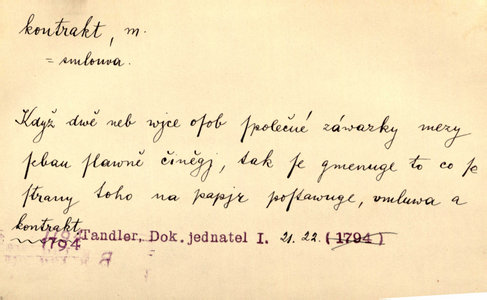 kontrakt, m.
= smlouva.
Když dwě neb wjce osob společné záwazky mezy
sebau slawně činěgj, tak se gmenuge to co se
strany toho na papjr postawuge, vmluwa a
kontrakt
1794 Tandler, Dok. jednatel I. 21. 22. (1794)